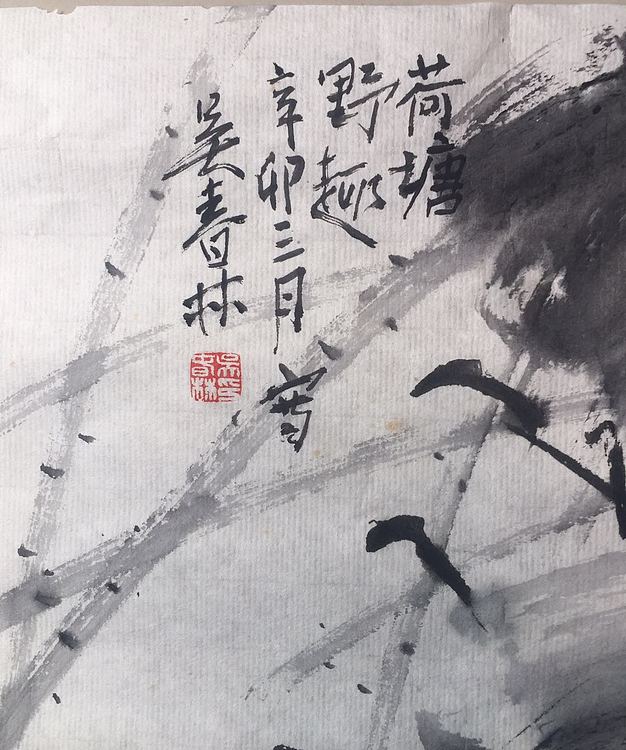 荷塘
野趣
辛卯三月写
吴春林
吴春林印